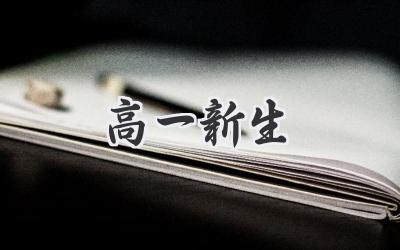 高一新生